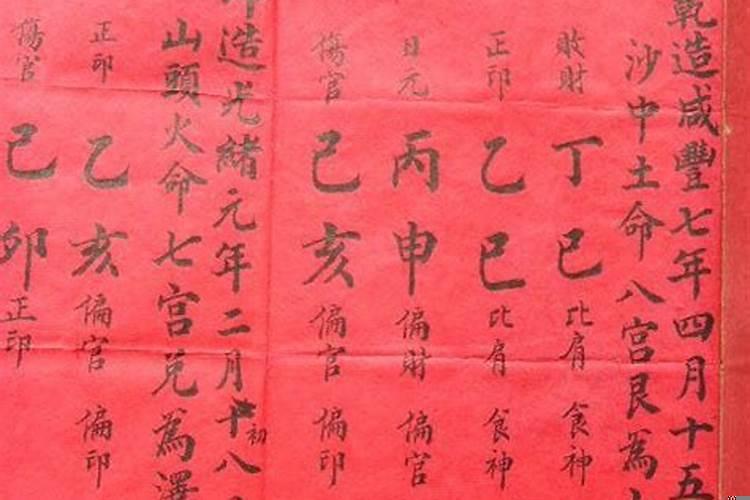 乾造咸豐七年四月十五
沙中土命八宫艮為
敗財丁巳比肩食神
正印乙巳比肩食神
日元丙申偏財偏官
傷官己亥偏官偏印
造光緒元年二月十初八
山頭火命七宫兑為澤
正印乙亥偏官偏印
傷官己卯正印